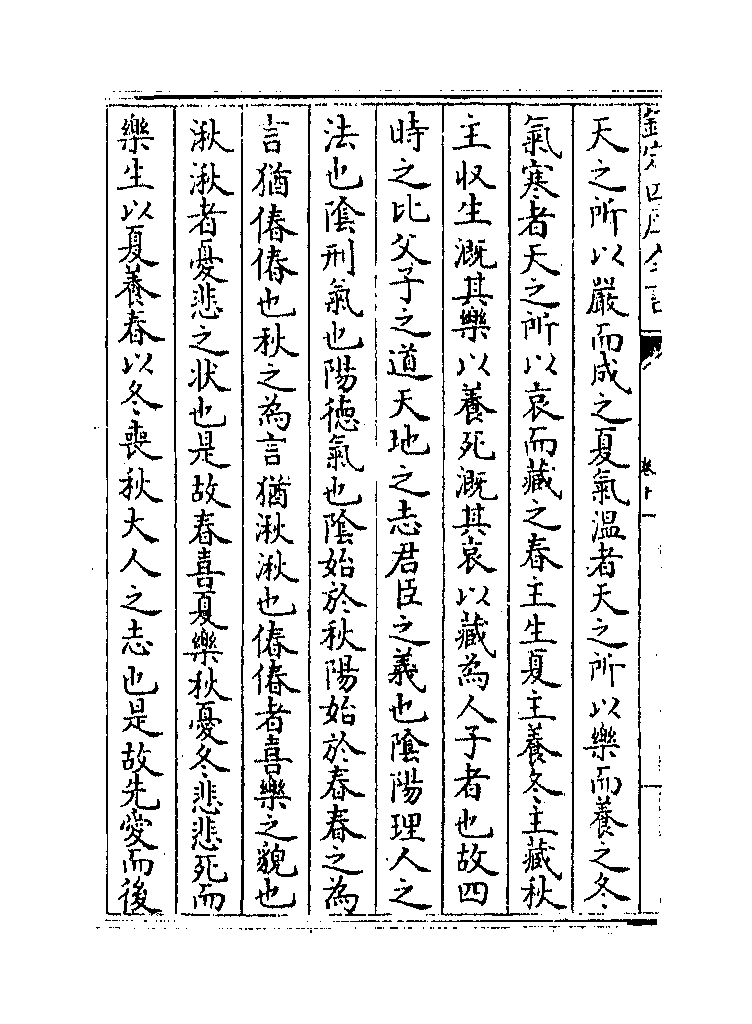 欽定四庫全書
卷十一
天之所以嚴而成之夏氣溫者天之所以樂而養之冬
氣寒者天之所以哀而藏之春主生夏主養冬主藏秋
主收生溉其樂以養死溉其哀以藏為人子者也故四
時之比父子之道天地之志君臣之義也陰陽理人之
法也陰刑氣也陽德氣也陰始於秋陽始於春春之為
言猶偆偆也秋之為言猶湫湫也偆偆者喜樂之貌也
湫湫者憂悲之狀也是故春喜夏樂秋憂冬悲悲死而
樂生以夏養春以冬喪秋大人之志也是故先愛而後